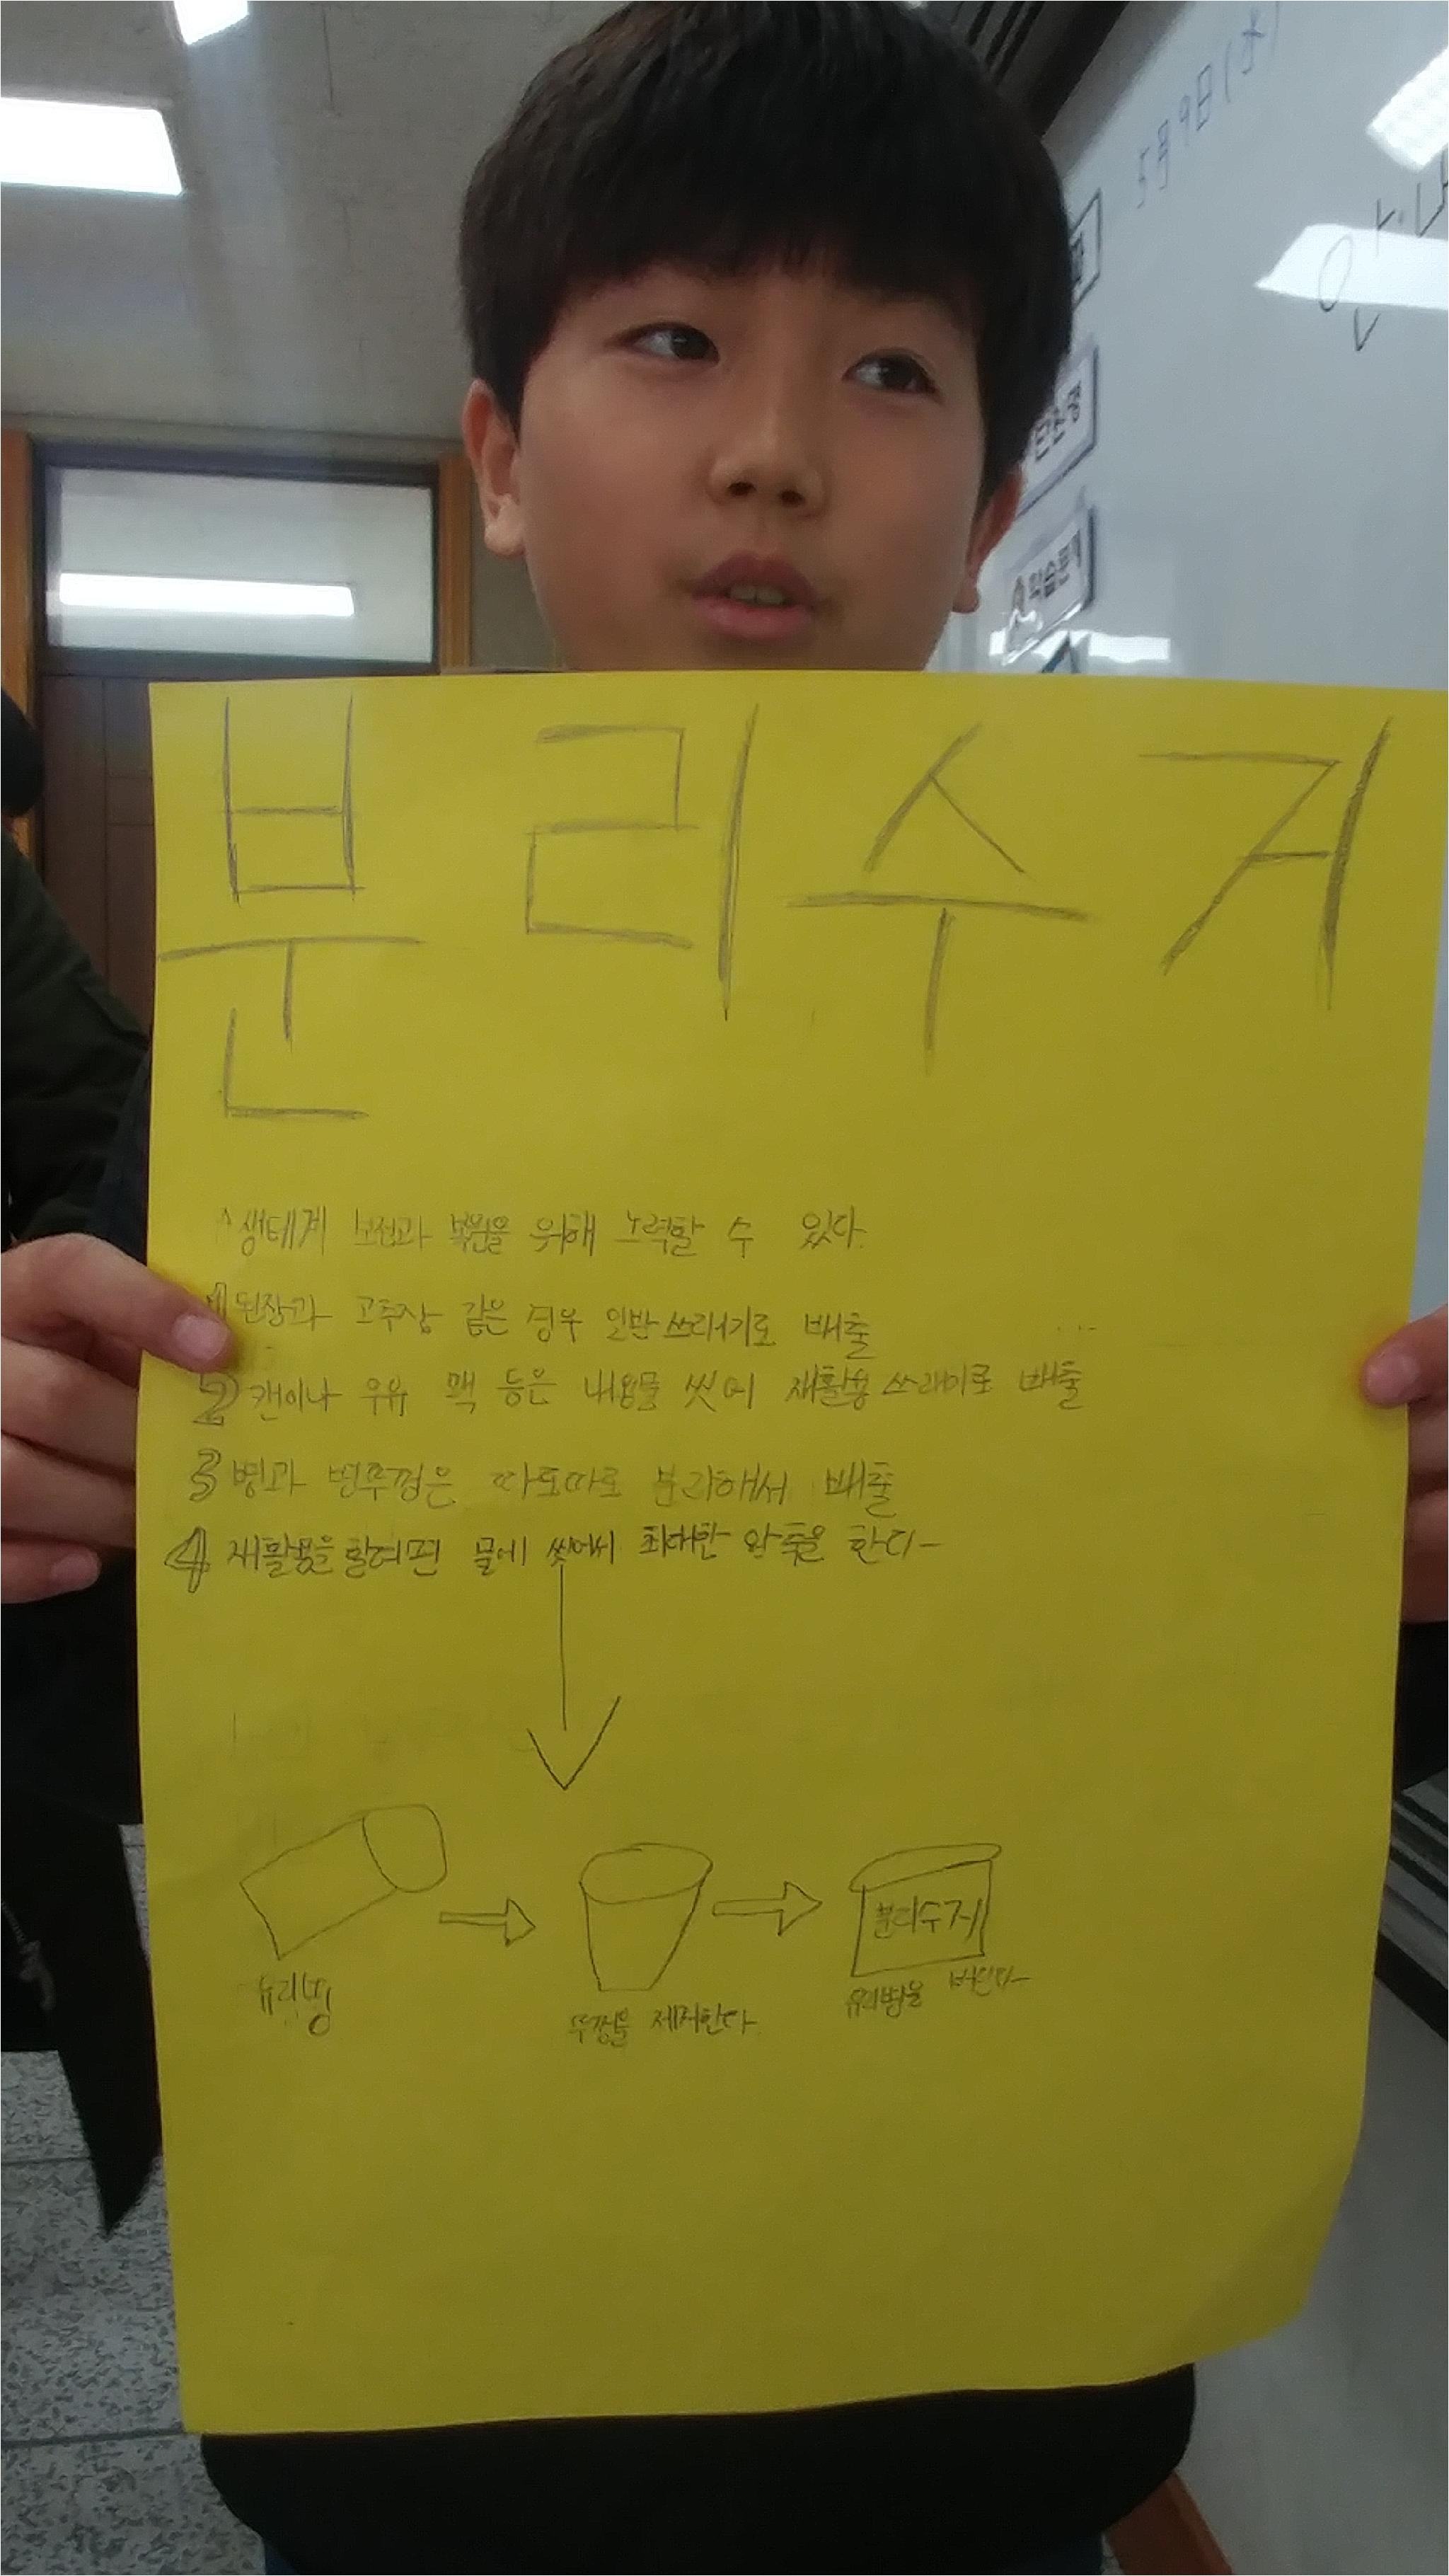 5月9日(水)
안내
학습문제
분리수거
생태계 보전과 복원을 위해 노력할 수 있다.
1 된장과 고추장 같은 경우 일반쓰레기로 배출
2 캔이나 우유 팩 등은 내용물 씻어 재활용쓰레기로 배출
3 병과 병뚜껑은 따로따로 분리해서 배출
4 재활용을 할려면 물에 씻어서 최대한 압축을 한다
분리수거
유리병
뚜껑을 제거한다.
유리병을 버린다